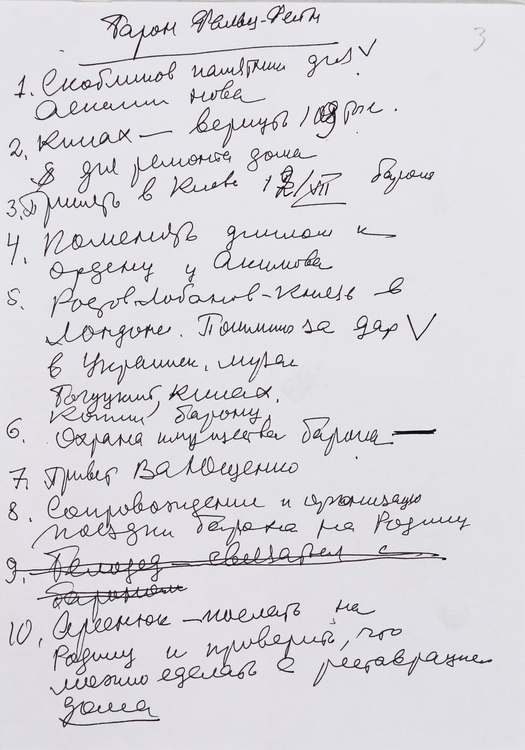 Барон Фальц-Фейн
3
1. Скоблинов памятник для V
Аскании нова
2. Кинах — вернуть
$ для ремонта дома
3. Принять в Киеве /VII барона
4. Поменять диплом к
ордену у Акимова
5. Князь в
Лондоне. Письмо за дар V
в Украинск. музеи
Богуцкий, Кинах.
6. Копии барону
Охрана имущества барона —
7. Привет Ва Ющенко
8. Сопровождение и организац
поездки барона на Родину
9. Белозед — связаться с
бароном
10. Арсенюк — поехать на
Родину и проверить, что
можно сделать с реставрацией
дома